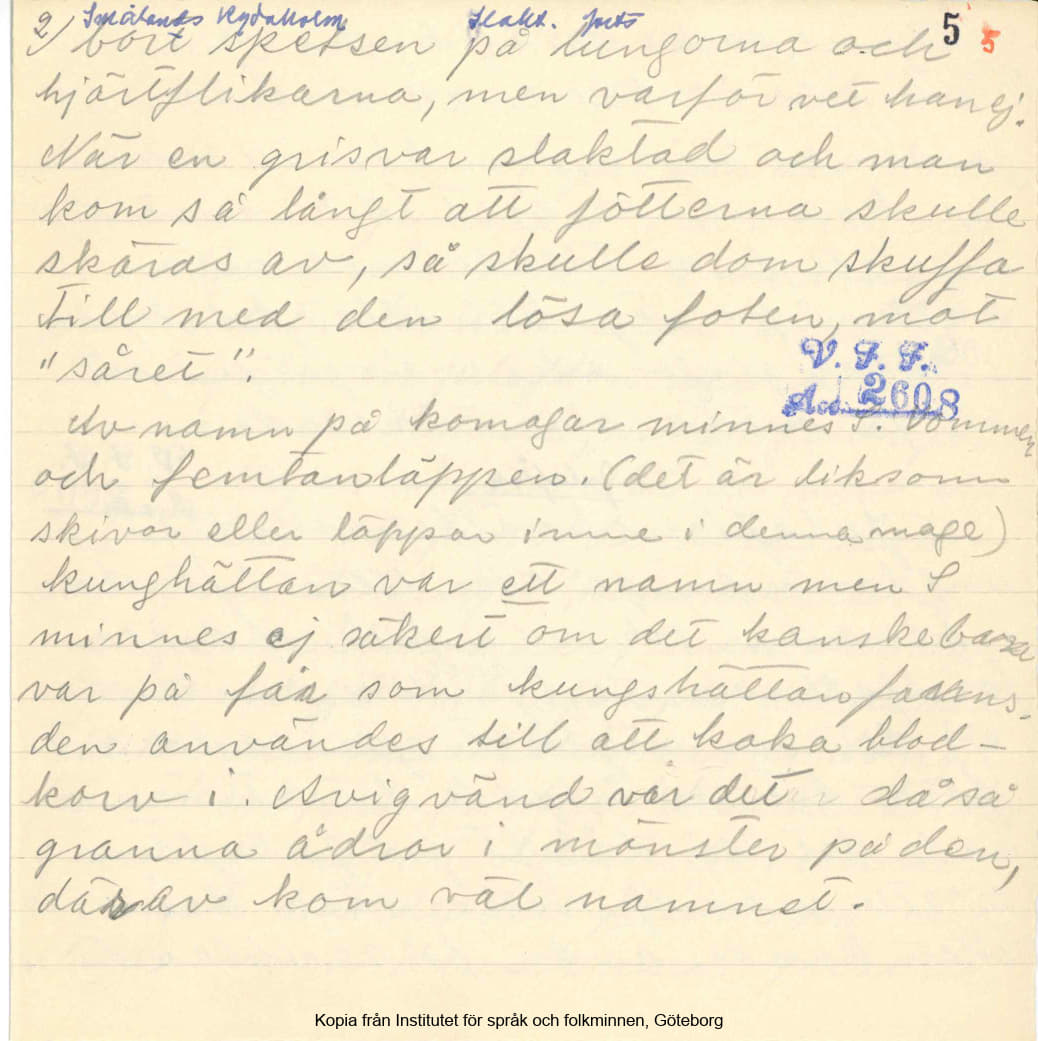 2) Smålands Rydaholm Slakt. forts 5 5
bort spetsen på lungorna och
hjärtflikarna, men varför vet han ej.
När en gris var slaktad och man
kom så långt att fötterna skulle
skäras av, så skulle dom skuffa
till med den lösa foten, mot
"såret".
V. F. F.
Acc. 2608
Av namn på komagar minnes S. Vommen
och femtanläppen. (det är liksom
skivor eller läppar inne i denna mage)
kunghättan var ett namn men S
minnes ej säkert om det kanske bara
var på får som kungshättan fanns.
den användes till att koka blod-
korv i. Avigvänd var det då så
granna ådror i mönster på den,
därav kom väl namnet.
Kopia från Institutet för språk och folkminnen, Göteborg